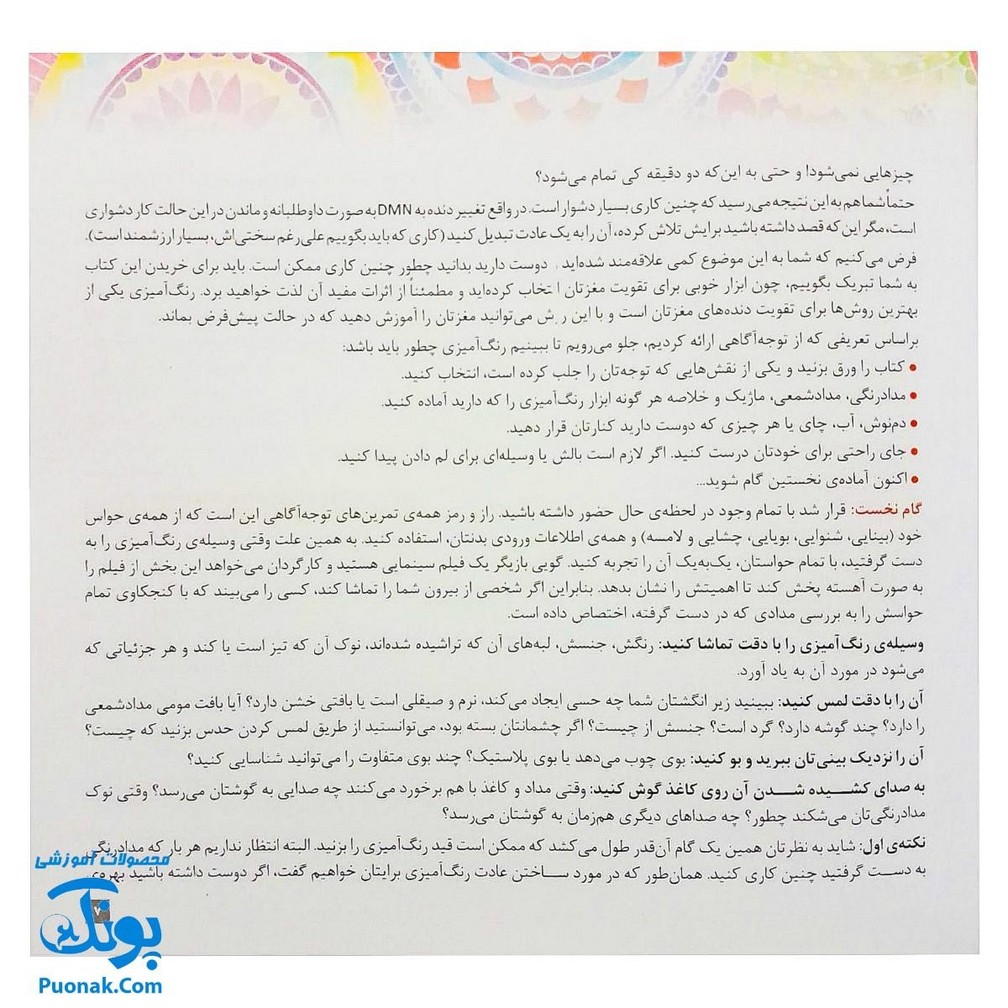 چیزهایی نمی‌شود! و حتی به این‌که دو دقیقه کی تمام می‌شود؟
حتماً شما هم به این نتیجه می‌رسید که چنین کاری بسیار دشوار است. در واقع تغییر دنده به DMN به صورت داوطلبانه و ماندن در این حالت کار دشواری
است، مگر این که قصد داشته باشید برایش تلاش کرده، آن را به یک عادت تبدیل کنید (کاری که باید بگوییم علی‌رغم سختی‌اش، بسیار ارزشمند است).
فرض می‌کنیم که شما به این موضوع کمی علاقه‌مند شده‌اید دوست دارید بدانید چطور چنین کاری ممکن است. باید برای خریدن این کتاب
به شما تبریک بگوییم، چون ابزار خوبی برای تقویت مغزتان انتخاب کرده‌اید و مطمئناً از اثرات مفید آن لذت خواهید برد. رنگ‌آمیزی یکی از
بهترین روش‌ها برای تقویت دنده‌های مغزتان است و با این روش می‌توانید مغزتان را آموزش دهید که در حالت پیش‌فرض بماند.
براساس تعریفی که از توجه‌آگاهی ارائه کردیم، جلو می‌رویم تا ببینیم رنگ‌آمیزی چطور باید باشد:
• کتاب را ورق بزنید و یکی از نقش‌هایی که توجه‌تان را جلب کرده است، انتخاب کنید.
• مدادرنگی، مدادشمعی، ماژیک و خلاصه هر گونه ابزار رنگ‌آمیزی را که دارید آماده کنید.
• دم‌نوش، آب، چای یا هر چیزی که دوست دارید کنارتان قرار دهید.
• جای راحتی برای خودتان درست کنید. اگر لازم است بالش یا وسیله‌ای برای لم دادن پیدا کنید.
• اکنون آماده‌ی نخستین گام شوید...
گام نخست: قرار شد با تمام وجود در لحظه‌ی حال حضور داشته باشید. راز و رمز همه‌ی تمرین‌های توجه‌آگاهی این است که از همه‌ی حواس
خود (بینایی، شنوایی، بویایی، چشایی و لامسه) و همه‌ی اطلاعات ورودی بدنتان، استفاده کنید. به همین علت وقتی وسیله‌ی رنگ‌آمیزی را به
دست گرفتید، با تمام حواستان، یک‌به‌یک آن را تجربه کنید. گویی بازیگر یک فیلم سینمایی هستید و کارگردان می‌خواهد این بخش از فیلم را
به صورت آهسته پخش کند تا اهمیتش را نشان بدهد. بنابراین اگر شخصی از بیرون شما را تماشا کند، کسی را می‌بیند که با کنجکاوی تمام
حواسش را به بررسی مدادی که در دست گرفته، اختصاص داده است.
وسیله‌ی رنگ‌آمیزی را با دقت تماشا کنید: رنگش، جنسش، لبه‌های آن که تراشیده شده‌اند، نوک آن که تیز است یا کند و هر جزئیاتی که
می‌شود در مورد آن به یاد آورد.
آن را با دقت لمس کنید: ببینید زیر انگشتان شما چه حسی ایجاد می‌کند، نرم و صیقلی است یا بافتی خشن دارد؟ آیا بافت مومی مدادشمعی
را دارد؟ چند گوشه دارد؟ گرد است؟ جنسش از چیست؟ اگر چشمانتان بسته بود، می‌توانستید از طریق لمس کردن حدس بزنید که چیست؟
آن را نزدیک بینی‌تان ببرید و بو کنید: بوی چوب می‌دهد یا بوی پلاستیک؟ چند بوی متفاوت را می‌توانید شناسایی کنید؟
به صدای کشیده شدن آن روی کاغذ گوش کنید: وقتی مداد و کاغذ با هم برخورد می‌کنند چه صدایی به گوشتان می‌رسد؟ وقتی نوک
مدادرنگی‌تان می‌شکند چطور؟ چه صداهای دیگری هم‌زمان به گوشتان می‌رسد؟
نکته‌ی اول: شاید به نظرتان همین یک گام آن‌قدر طول می‌کشد که ممکن است قید رنگ‌آمیزی را بزنید. البته انتظار نداریم هر بار که مدادرنگی
به دست گرفتید چنین کاری کنید. همان‌طور که در مورد ساختن عادت رنگ‌آمیزی برایتان خواهیم گفت، اگر دوست داشته باشید بهره‌ی
۷
محصولات آموزشی
پونک
Puonak.Com